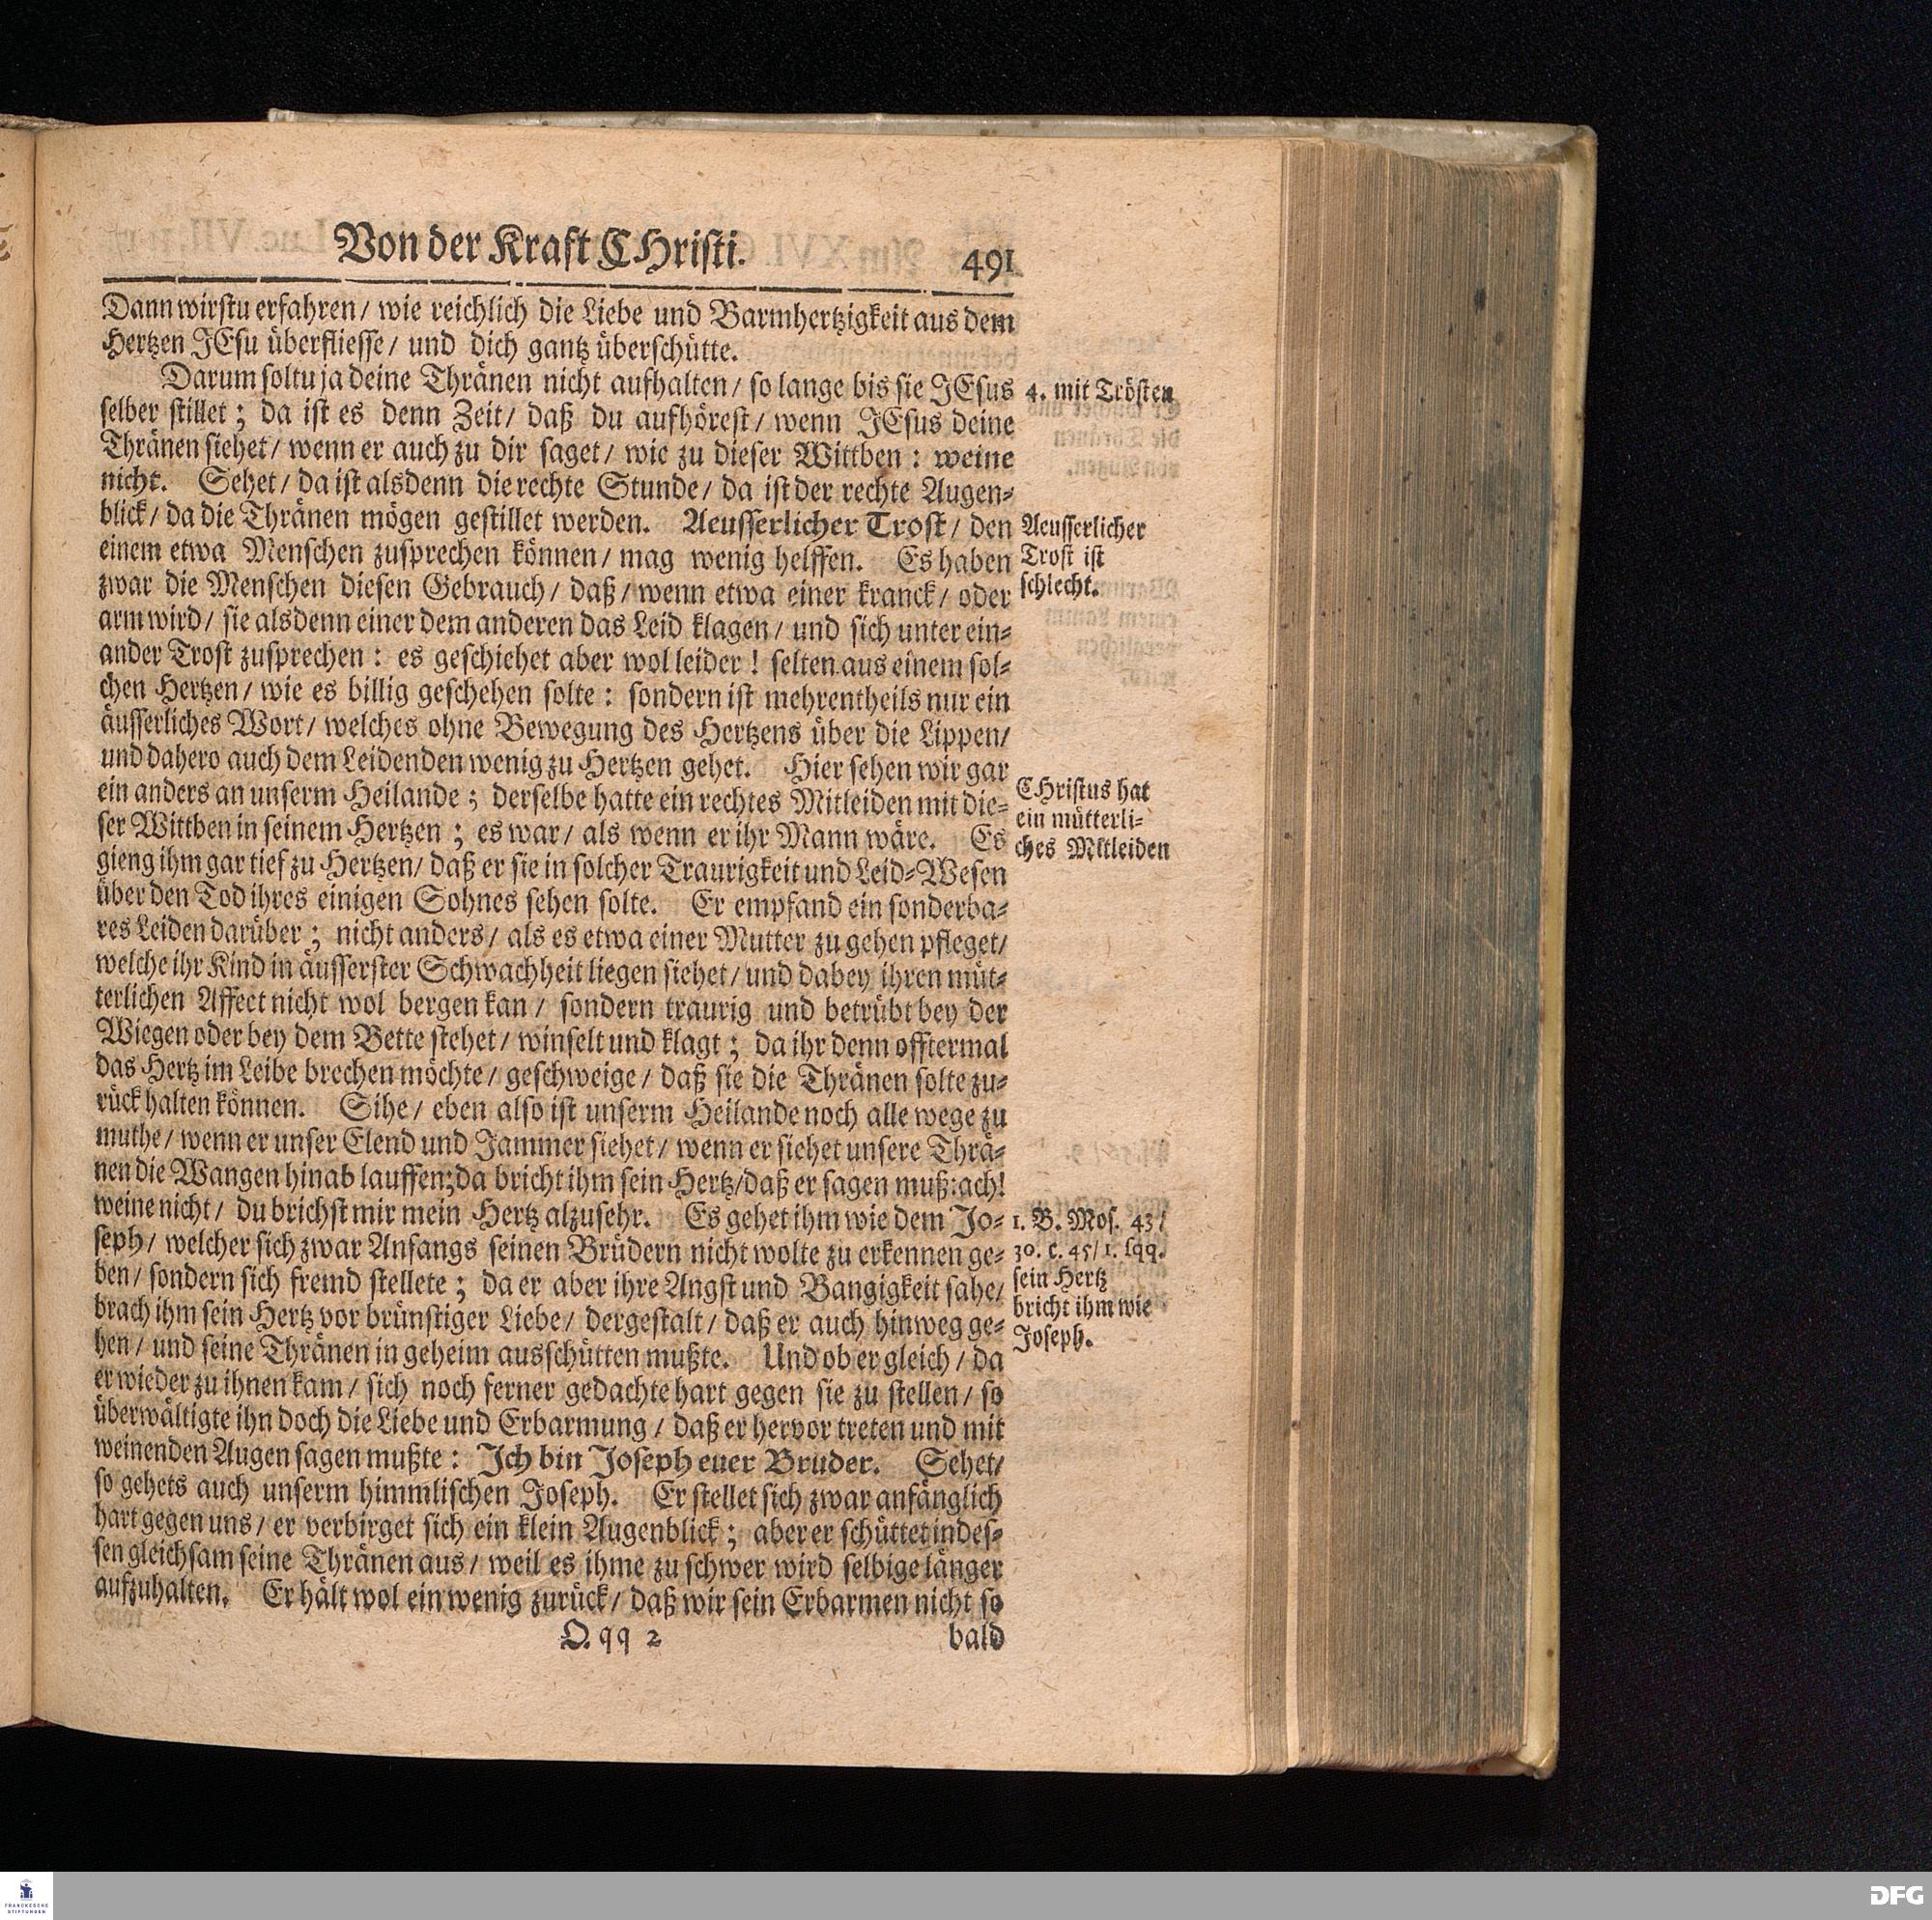 Von der Kraft CHristi. 491
Dann wirstu erfahren / wie reichlich die Liebe und Barmhertzigkeit aus dem
Hertzen JEsu überfliesse / und dich gantz überschütte.
Darum soltu ja deine Thränen nicht aufhalten / so lange bis sie JEsus
selber stillet ; da ist es denn Zeit / daß du aufhörest / wenn JEsus deine
Thränen siehet / wenn er auch zu dir saget / wie zu dieser Wittben : weine
nicht. Sehet / da ist alsdenn die rechte Stunde / da ist der rechte Augen-
blick / da die Thränen mögen gestillet werden. Aeusserlicher Trost / den
einem etwa Menschen zusprechen können / mag wenig helffen. Es haben
zwar die Menschen diesen Gebrauch / daß / wenn etwa einer kranck / oder
arm wird / sie alsdenn einer dem anderen das Leid klagen / und sich unter ein-
ander Trost zusprechen : es geschiehet aber wol leider ! selten aus einem sol-
chen Hertzen / wie es billig geschehen solte : sondern ist mehrentheils nur ein
äusserliches Wort / welches ohne Bewegung des Hertzens über die Lippen /
und dahero auch dem Leidenden wenig zu Hertzen gehet. Hier sehen wir gar
ein anders an unserm Heilande ; derselbe hatte ein rechtes Mitleiden mit die-
ser Wittben in seinem Hertzen ; es war / als wenn er ihr Mann wäre. Es
gieng ihm gar tief zu Hertzen / daß er sie in solcher Traurigkeit und Leid-Wesen
über den Tod ihres einigen Sohnes sehen solte. Er empfand ein sonderba-
res Leiden darüber ; nicht anders / als es etwa einer Mutter zu gehen pfleget /
welche ihr Kind in äusserster Schwachheit liegen siehet / und dabey ihren müt-
terlichen Affect nicht wol bergen kan / sondern traurig und betrübt bey der
Wiegen oder bey dem Bette stehet / winselt und klagt ; da ihr denn offtermal
das Hertz im Leibe brechen möchte / geschweige / daß sie die Thränen solte zu-
rück halten können. Sihe / eben also ist unserm Heilande noch alle wege zu
muthe / wenn er unser Elend und Jammer siehet / wenn er siehet unsere Thrä-
nen die Wangen hinab lauffen; da bricht ihm sein Hertz / daß er sagen muß: ach!
weine nicht / du brichst mir mein Hertz alzusehr. Es gehet ihm wie dem Jo-
seph / welcher sich zwar Anfangs seinen Brüdern nicht wolte zu erkennen ge-
ben / sondern sich fremd stellete ; da er aber ihre Angst und Bangigkeit sahe /
brach ihm sein Hertz vor brünstiger Liebe / dergestalt / daß er auch hinweg ge-
hen / und seine Thränen in geheim ausschütten mußte. Und ob er gleich / da
er wieder zu ihnen kam / sich noch ferner gedachte hart gegen sie zu stellen / so
überwältigte ihn doch die Liebe und Erbarmung / daß er hervor treten und mit
weinenden Augen sagen mußte : Ich bin Joseph euer Bruder. Sehet /
so gehets auch unserm himmlischen Joseph. Er stellet sich zwar anfänglich
hart gegen uns / er verbirget sich ein klein Augenblick ; aber er schüttet indes-
sen gleichsam seine Thränen aus / weil es ihme zu schwer wird selbige länger
aufzuhalten. Er hält wol ein wenig zurück / daß wir sein Erbarmen nicht so
Q. qq 2 bald
4. mit Trösten
Aeusserlicher
Trost ist
schlecht.
CHristus hat
ein mütterli-
ches Mitleiden
1. B. Mos. 43 /
30. c. 45 / 1. sqq.
sein Hertz
bricht ihm wie
Joseph.
FRANCKESCHE
STIFTUNGEN
DFG